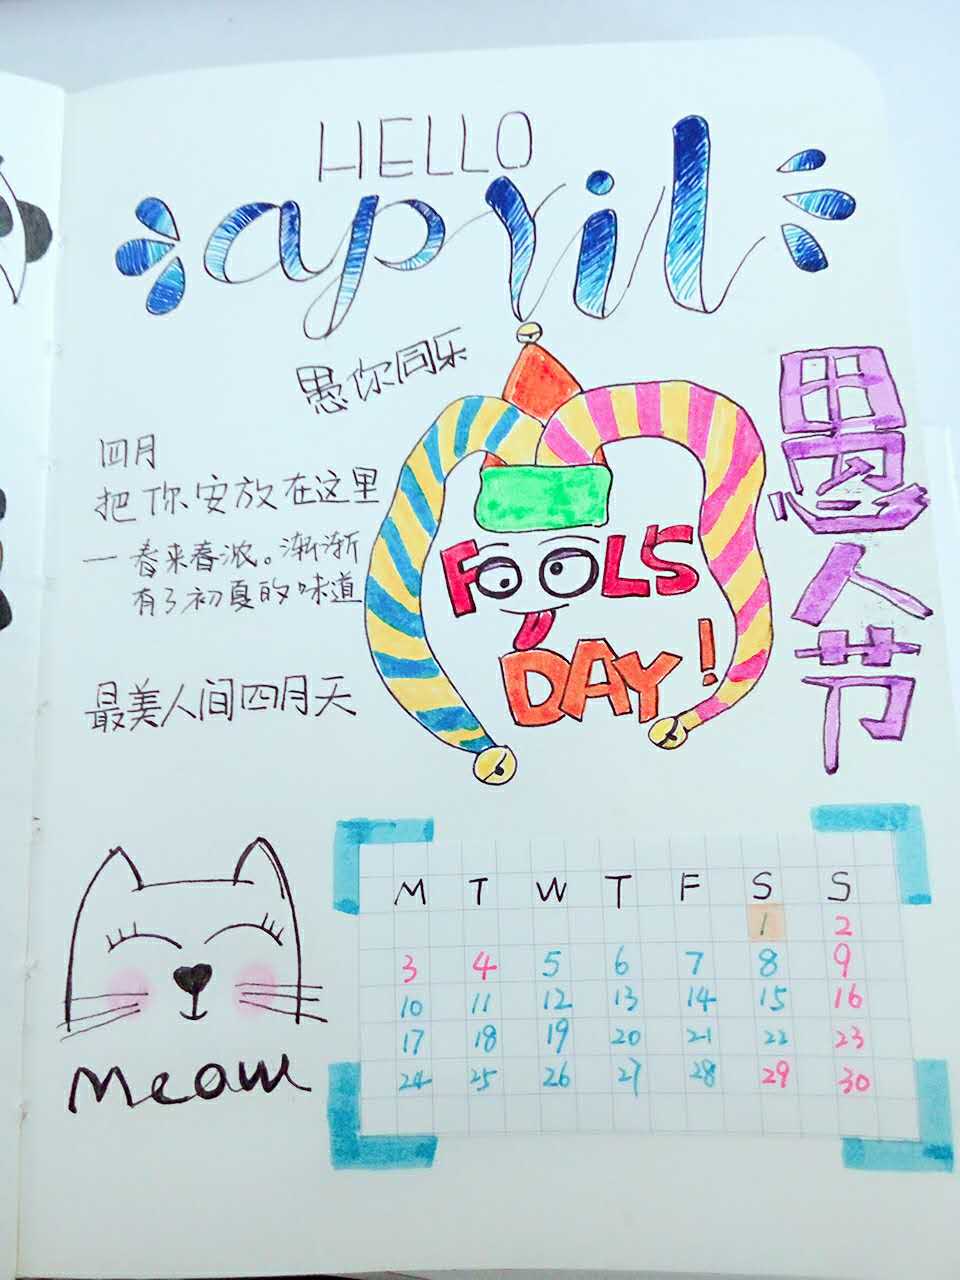 HELLO
april
愚你同乐
四月
把你安放在这里
一春来春浓。渐渐
有了初夏的味道
最美人间四月天
FOOLS
DAY!
愚人节
Meow
M T W T F S S
1 2
3 4 5 6 7 8 9
10 11 12 13 14 15 16
17 18 19 20 21 22 23
24 25 26 27 28 29 30